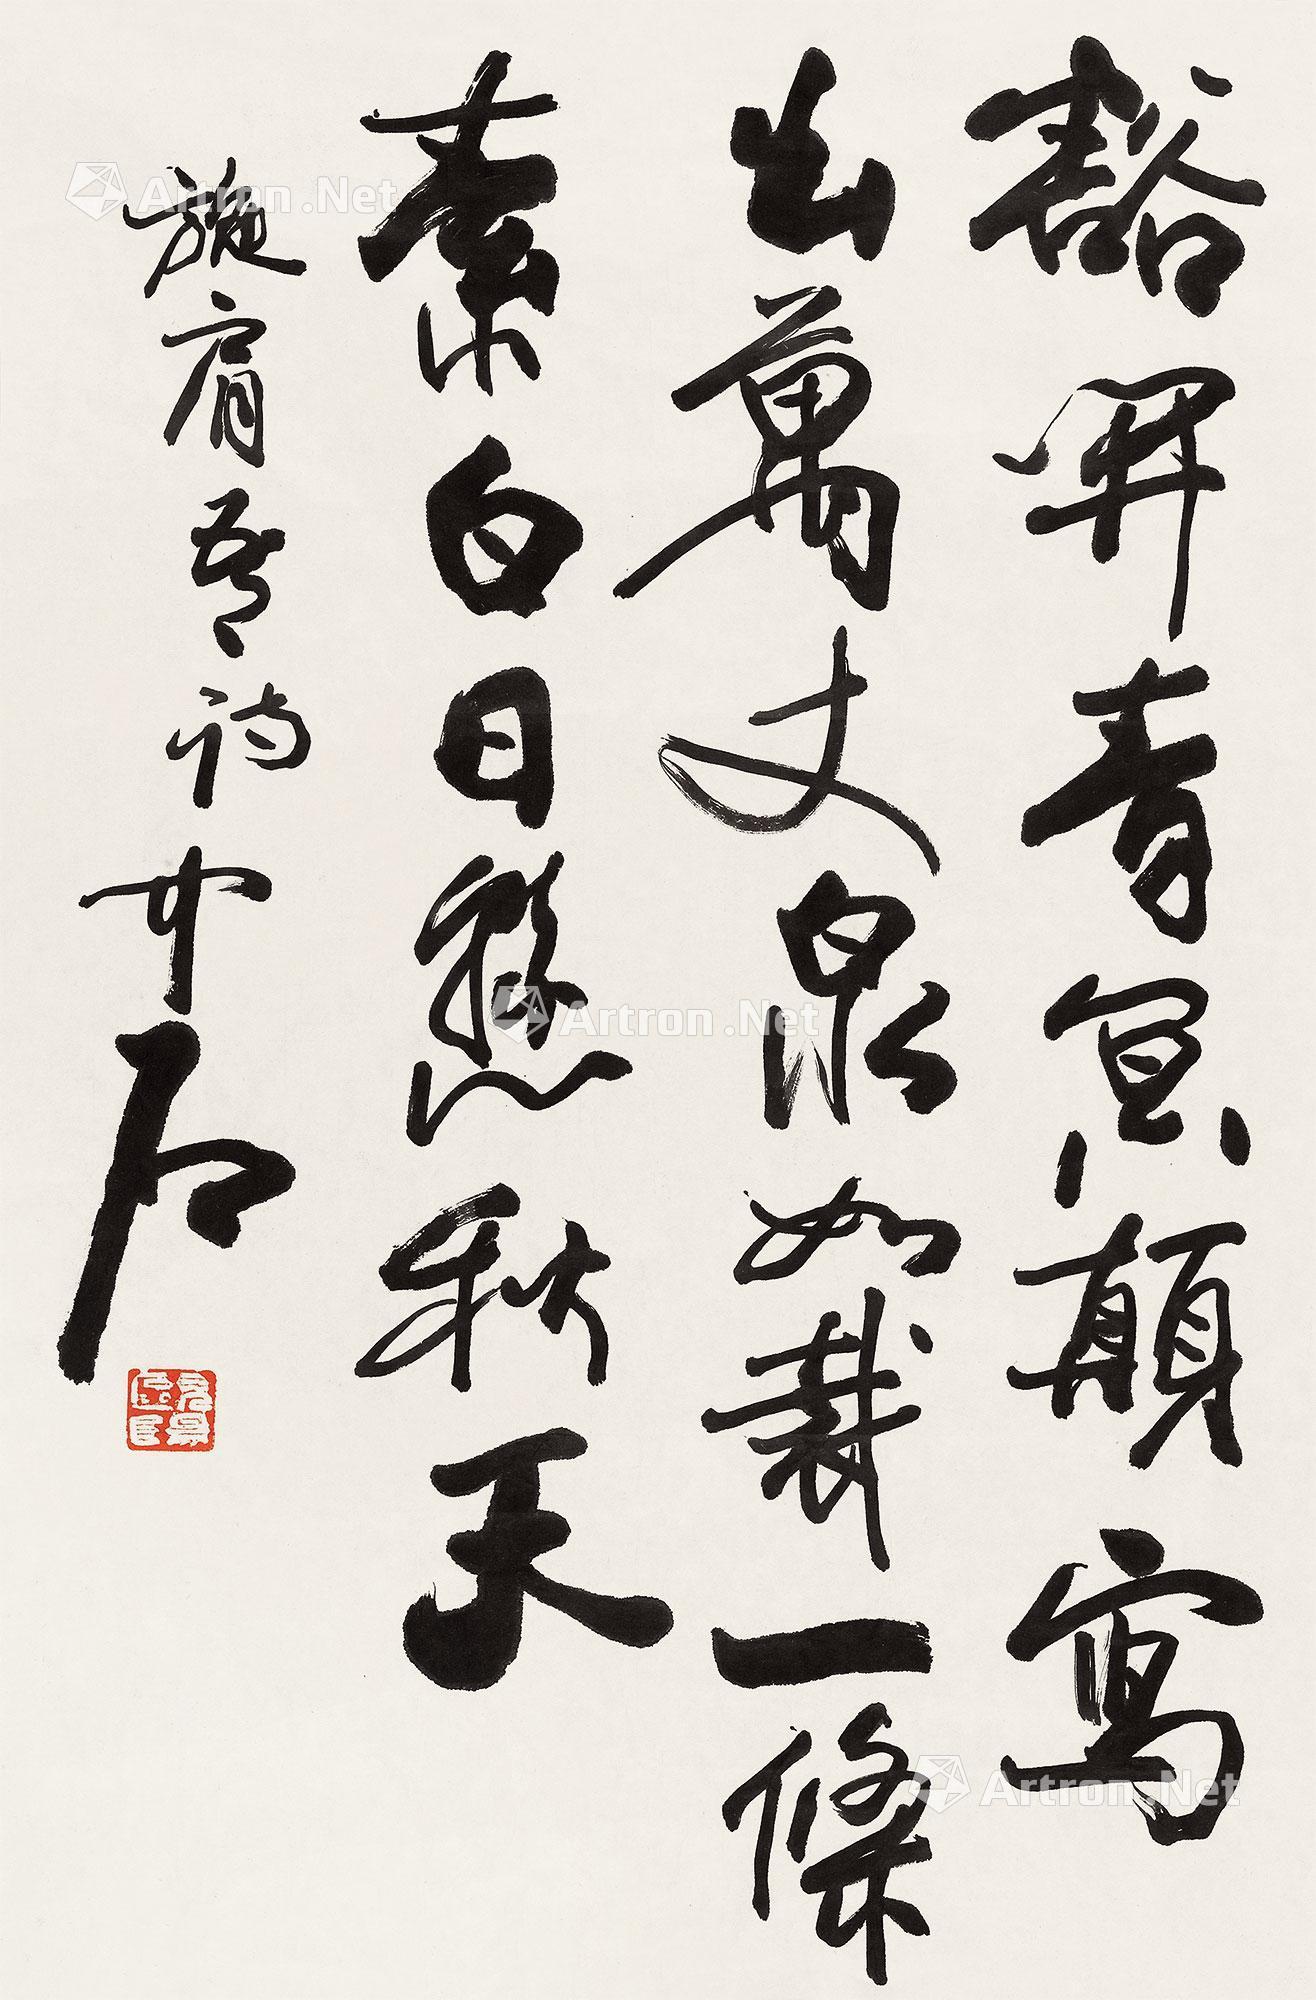 豁開青冥顛寫
出萬丈泉如裁一條
素白日懸秋天
施肩吾詩中石
Artron.Net
Artron.Net
Artron.Net